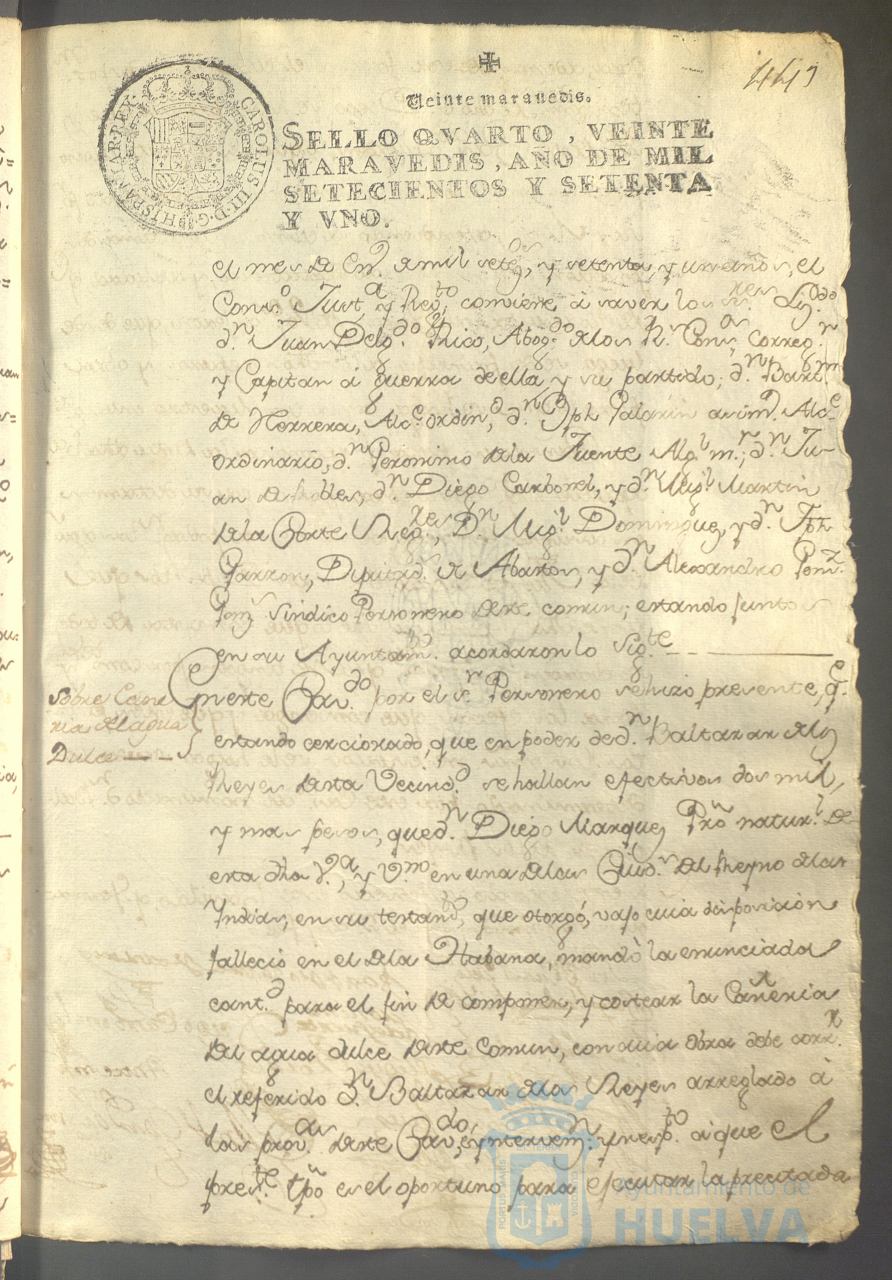 443
Veinte maravedis.
SELLO QVARTO, VEINTE
MARAVEDIS, AÑO DE MIL
SETECIENTOS Y SETENTA
Y VNO.
CAROLUS III D.G. HISPANIAR. REX
el mes de En.º de mil setez.os y setenta, y un años, el
Conz.º Just.a y Reg.to conviene à saver los ss.res Liz.do
d.n Juan Delg.do Rico, Abog.do de los R.s Cons.os Correg.r
y Capitan à guerra de ella y su partido; d.n Bart.me
de Herrera, Alc.e ordin.º, d.n Jph Palarin asim.º Alc.e
Ordinario, d.n Geronimo de la Fuente Alg.l m.r; d.n Ju-
an de Robles, d.n Diego Carbonel, y d.n Mig.l Martin
de la Corte Reg.res, D.n Mig.l Dominguez, y d.n Jph
Garzon, Diputad.s de Abastos, y d.n Alexandro
sindico Personero deste comun; estando juntos
en su Ayuntam.to acordaron lo sig.te
Sobre Cañe
ria del agua
Dulce
En este Cav.do por el s.r Personero se hizo presente, q.e
estando cerciorado, que en poder de d.n Baltazar de los
Reyes desta Vecind.d se hallan efectivos dos mil,
y mas pesos, que d.n Diego Marquez Pro natur.l de
esta dha V.a, y V.no en una de las Ciud.s del Reyno de las
Yndias, en su testam.to, que otorgó, vajo cuia disposicion
fallecio en el de la Habana, mandò la enunciada
cant.d para el fin de componer, y costear la Cañeria
del agua dulce deste Comun, con cuia obra debe corr.r
el referido d.n Baltazar de los Reyes arreglado à
las prov.as deste Cav.do, è yntervenz.n y resp.to à que el
pres.te tpo es el oportuno para ejecutar la precitada
Ayuntamiento de
HUELVA